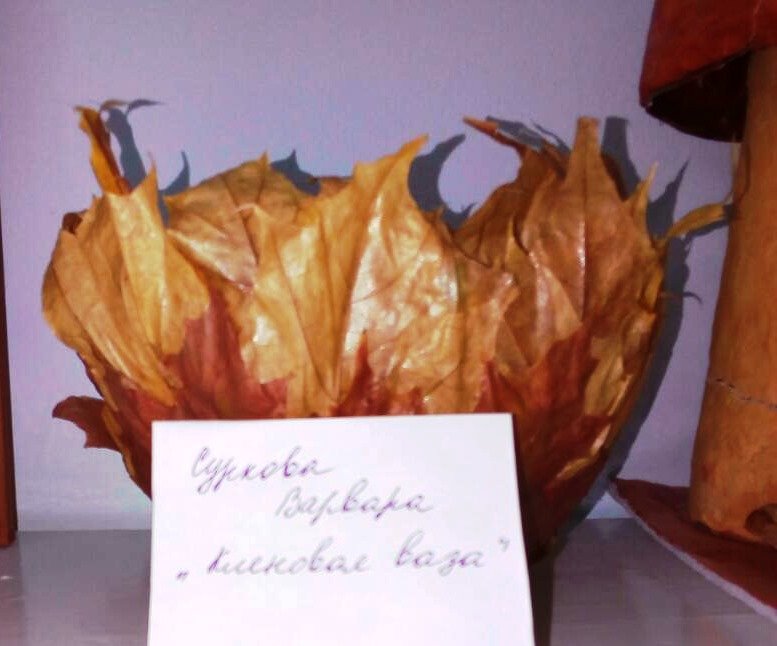 Суркова
Варвара
„Кленовая ваза"